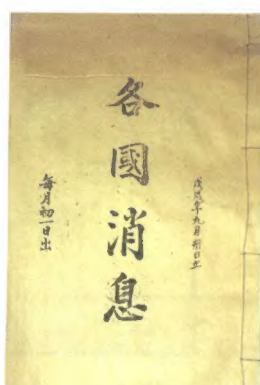 戊戌年九月朔日出
各國消息
每月初一日出